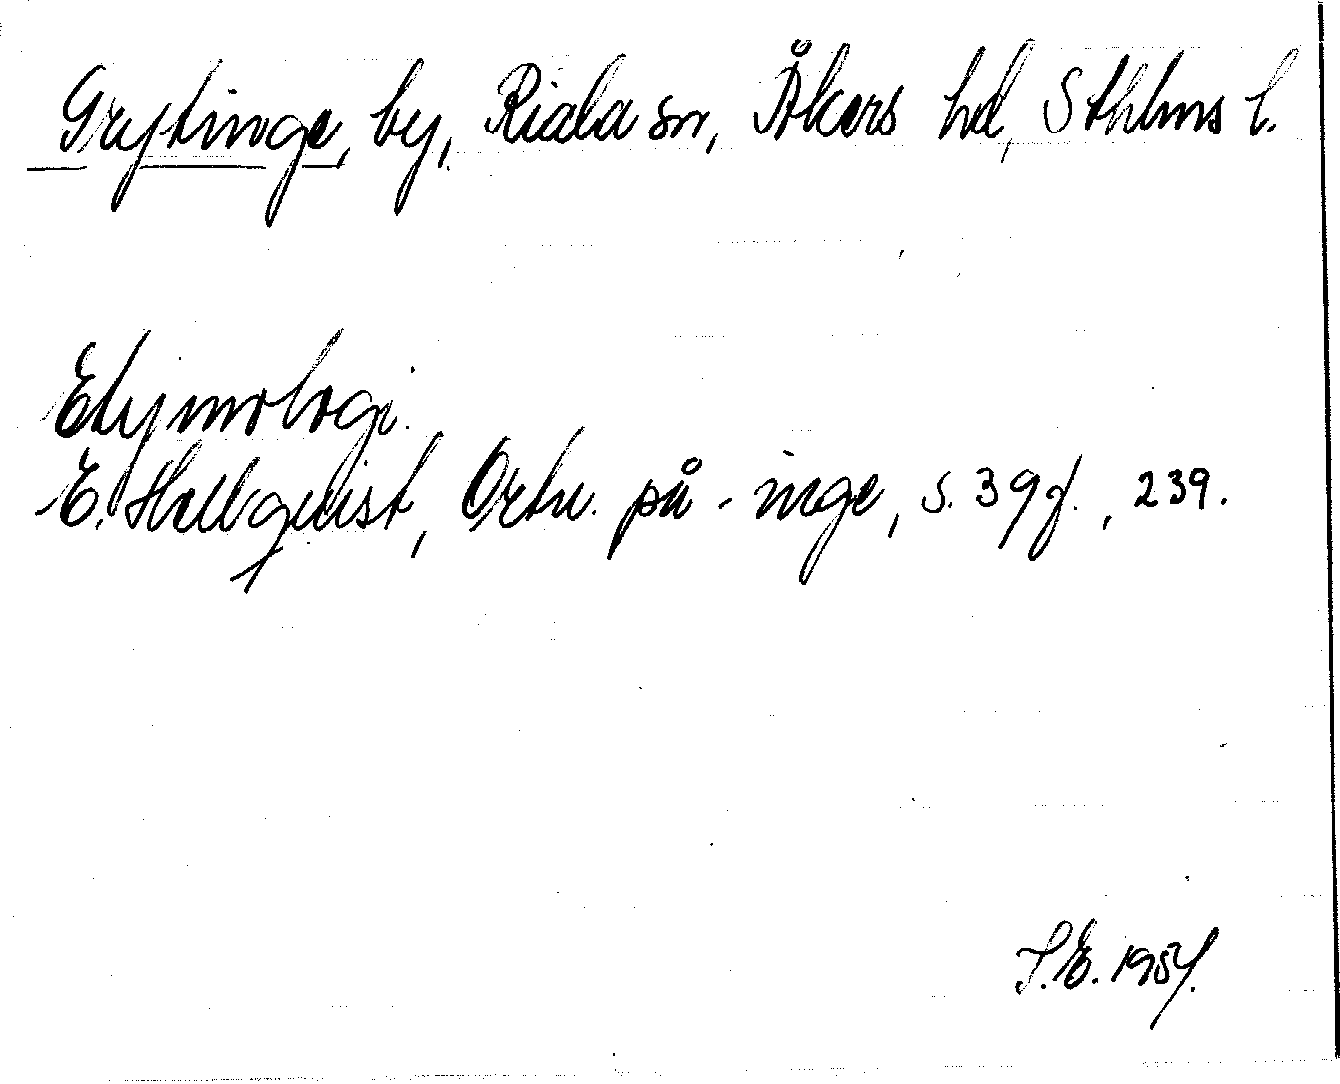 Grytinge, by, Riala sn, Åkers hd, Sthlms l.
Etymologi.
E. Hellquist, Ortn. på -inge, s. 39 f., 239.
S.E. 1954.